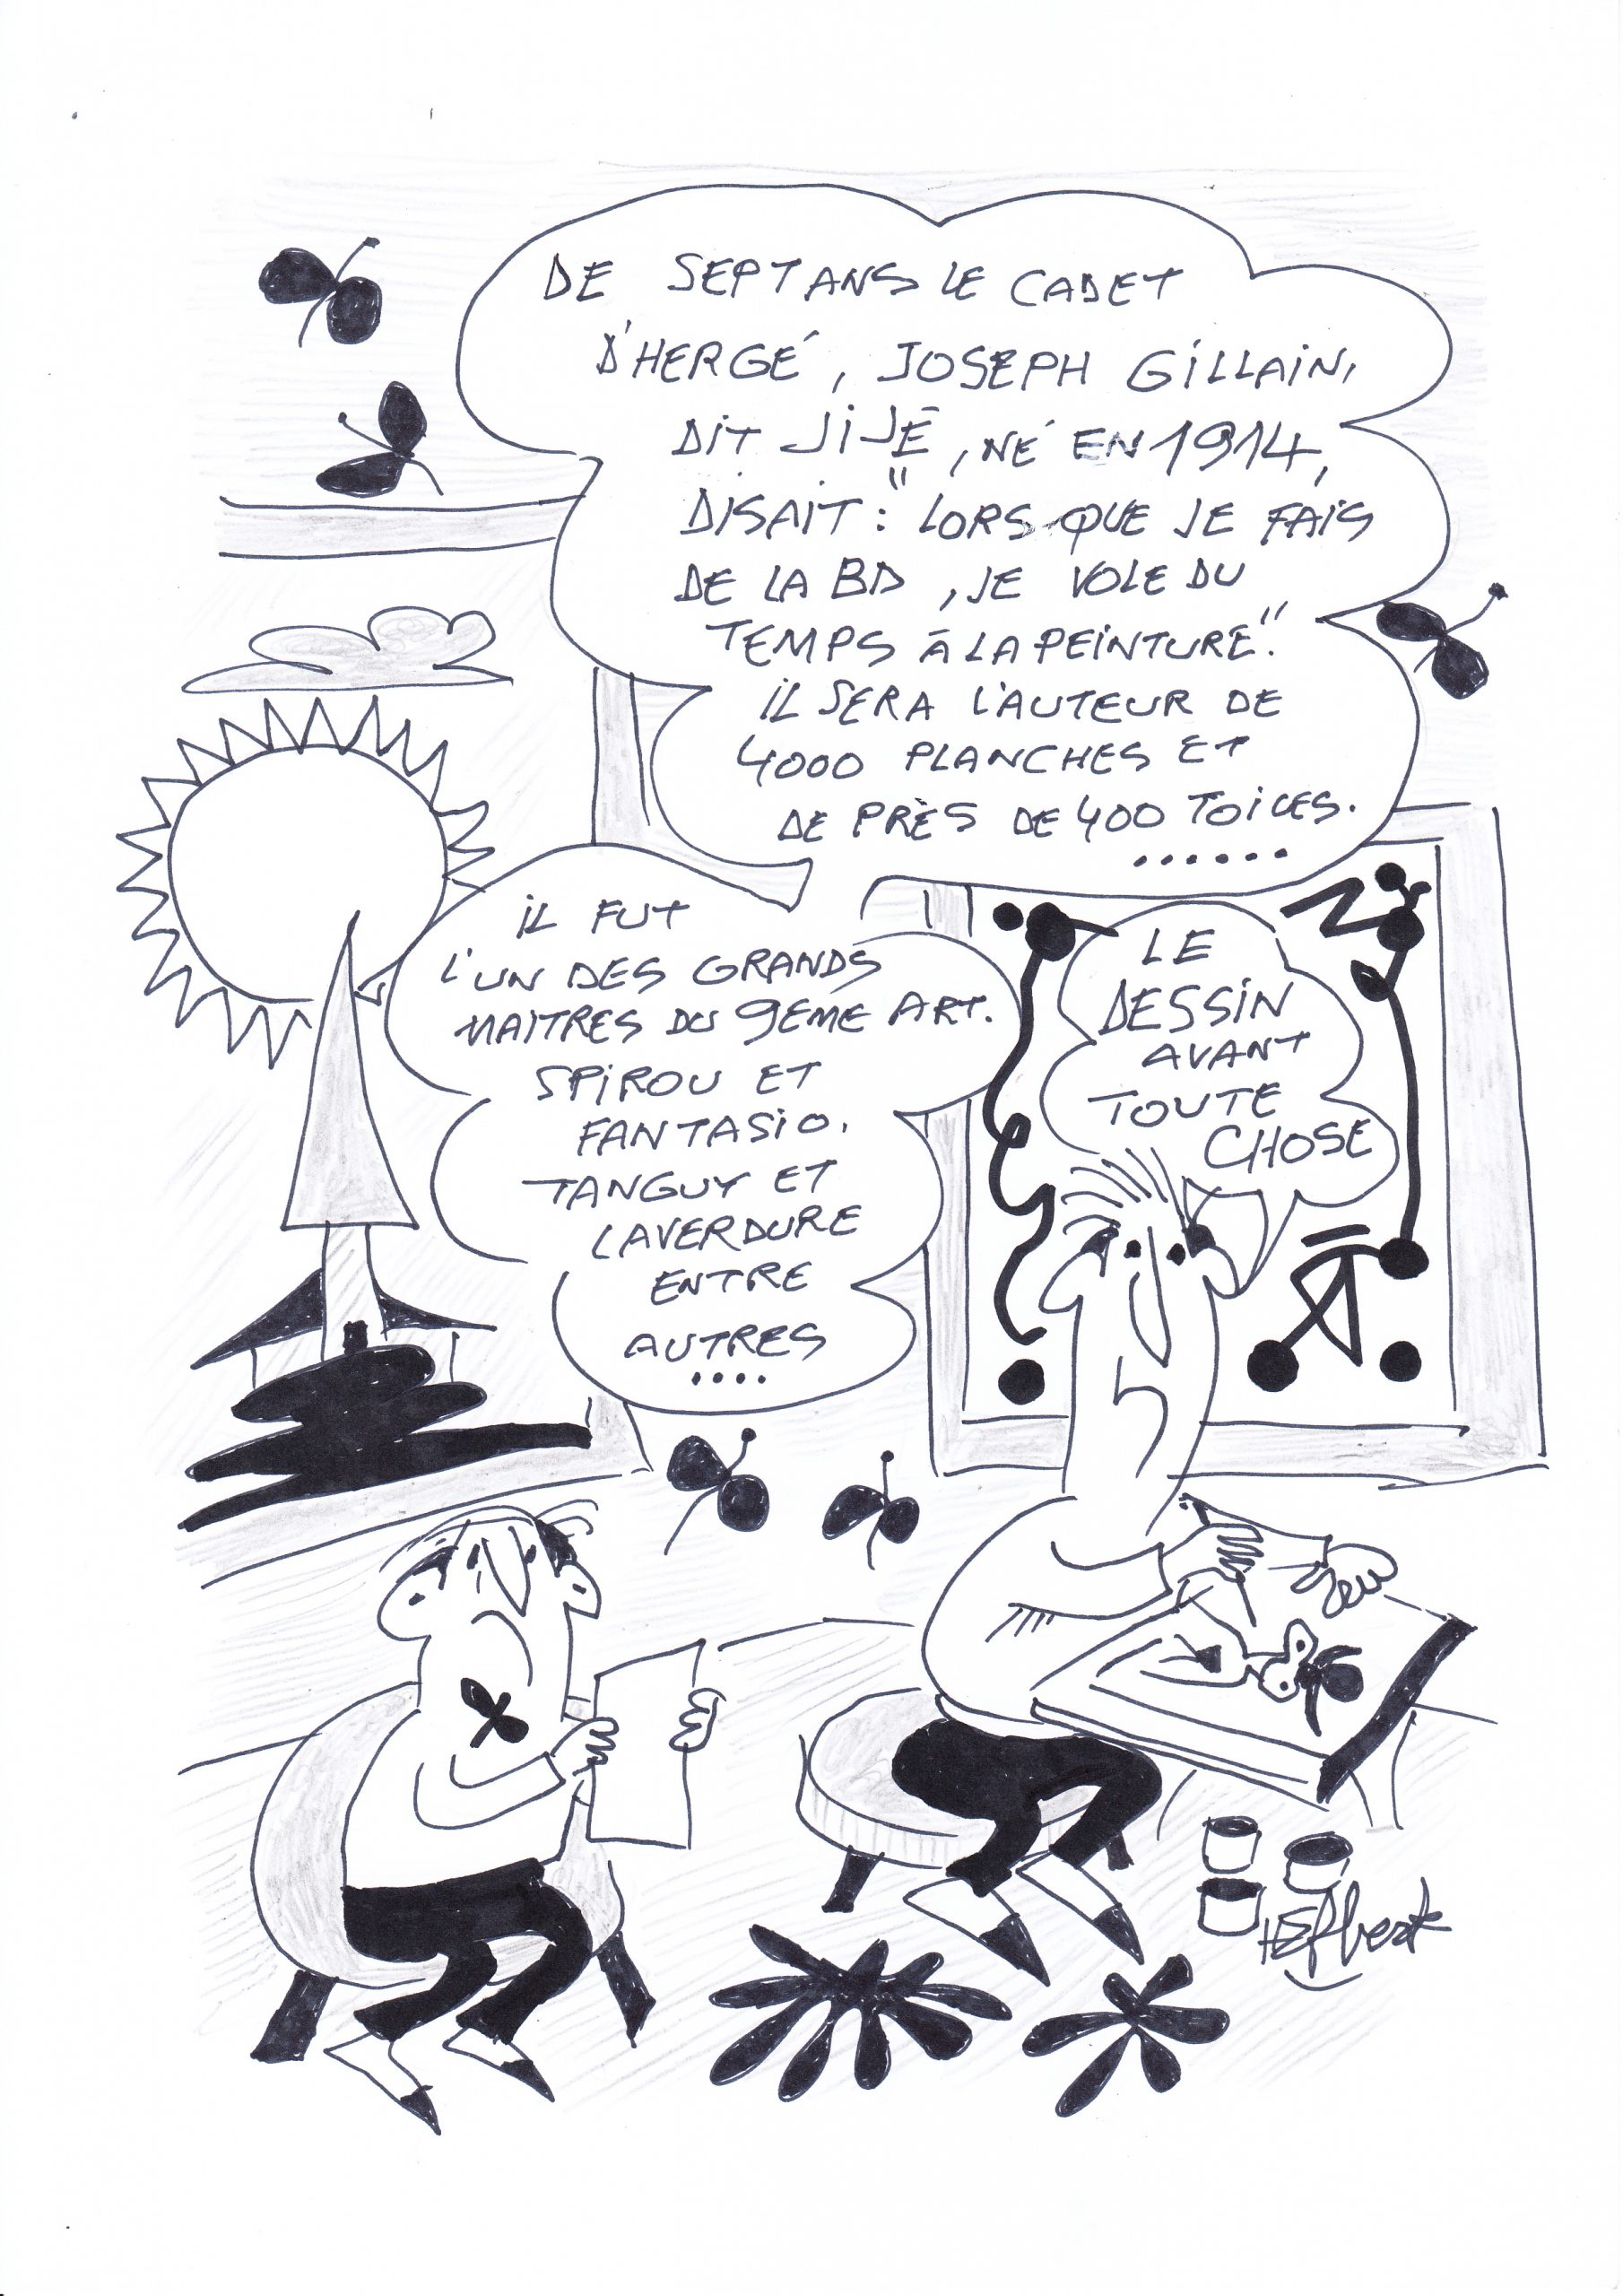 DE SEPT ANS LE CADET
D'HERGÉ, JOSEPH GILLAIN,
DIT JIJÉ, NÉ EN 1914,
DISAIT : "LORSQUE JE FAIS
DE LA BD, JE VOLE DU
TEMPS À LA PEINTURE."
IL SERA L'AUTEUR DE
4000 PLANCHES ET
DE PRÈS DE 400 TOILES.
......
IL FUT
L'UN DES GRANDS
MAITRES DU 9EME ART.
SPIROU ET
FANTASIO.
TANGUY ET
LAVERDURE
ENTRE
AUTRES
....
LE
DESSIN
AVANT
TOUTE
CHOSE